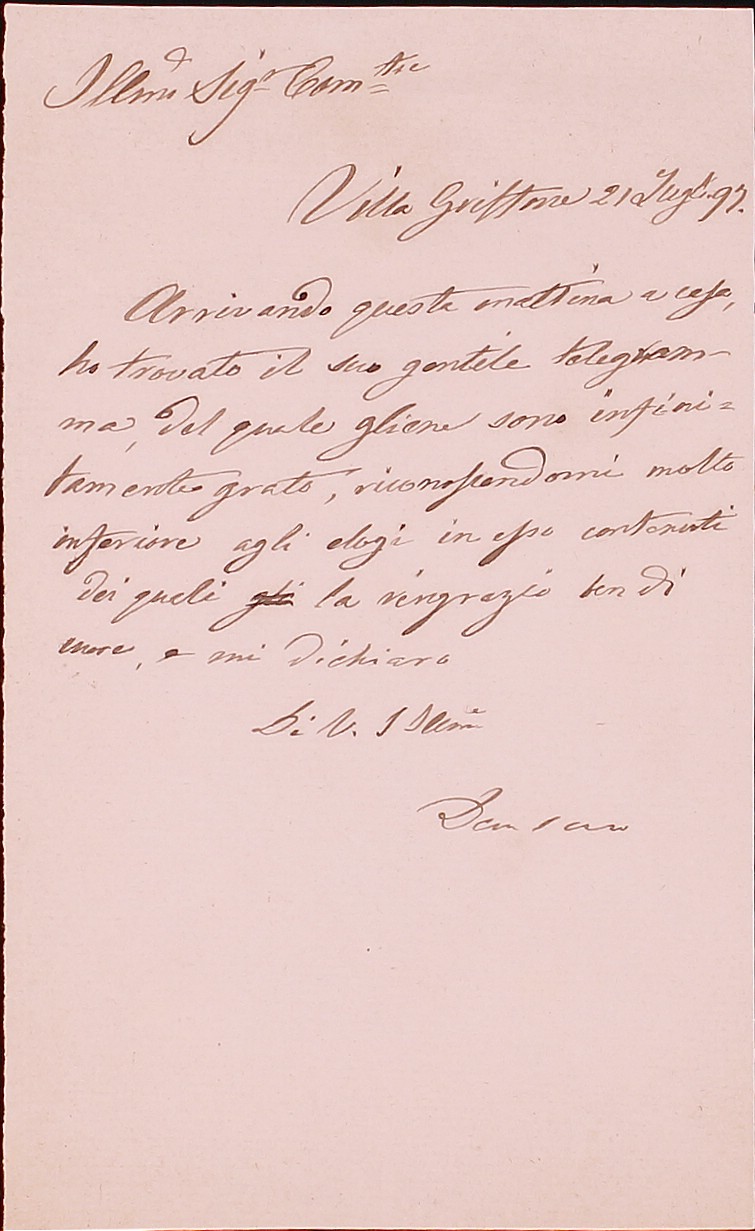 Illmo Sigr Comtre
Villa Griffone 21 Lugl. 97.
Arrivando questa mattina a casa,
ho trovato il suo gentile telegram-
ma, del quale gliene sono infini=
tamente grato, riconossendomi molto
inferiore agli elogi in esso contenuti
dei quali gli la ringrazio ben di
cuore, e mi dichiaro
Di V. S Illma